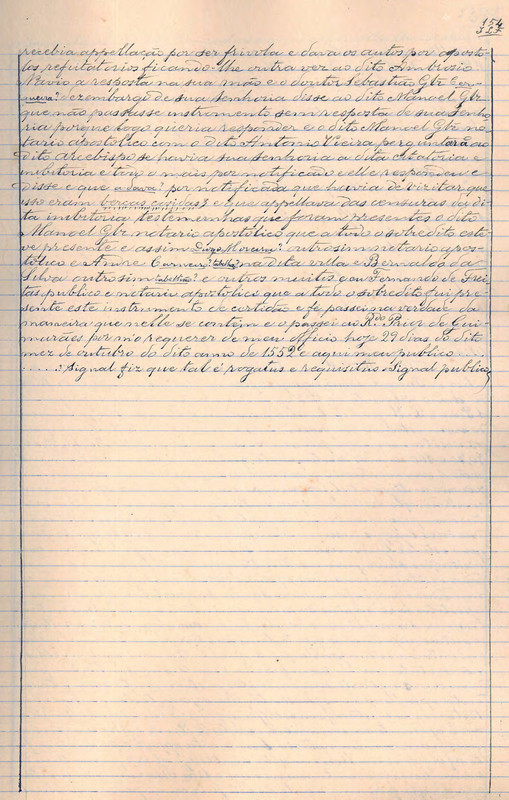 154
327
recebia appellação por ser frivola e dava os autos por aposto-
los refutatorios ficando-lhe outra vez ao dito Ambrosio
Navio a resposta na sua mão e o doutor Sebastião Glz
dezembargo de sua senhoria disse ao dito Manoel Glz
que não passasse instrumento sem resposta de sua senho-
ria porque logo queria responder e o dito Manoel Glz no-
tario apostolico com o dito Antonio Vieira perguntara ao
dito arcebispo se havia sua senhoria a dita
inibitoria e todo o mais por notificação e elle respondeu e
disse e que a dava? por notificada que havia de vizitar que
isso eram borcas cavidas? e que appellava das censuras da di-
ta inibitoria testemunhas que foram presentes o dito
Manoel Glz notario apostolico que a todo o sobredito este-
ve presente e assim outrosim notario apos-
tolico e Andre na dita villa e Bernaldo da
Silva outrosim e outros muitos e eu Fernando de Frei-
tas publico e notario apostolico que a todo o sobredito fui pre-
sente este instrumento de certidão e fe passei na verdade da
maneira que nelle se contem e o passei ao R.do Prior de Gui-
marães por m'o requerer de meu officio hoje 29 dias do dito
mez de outubro do dito anno de 1552 e aqui meu publico . . . .
. . . . : signal fiz que tal é rogatus e requisitus = Signal publico